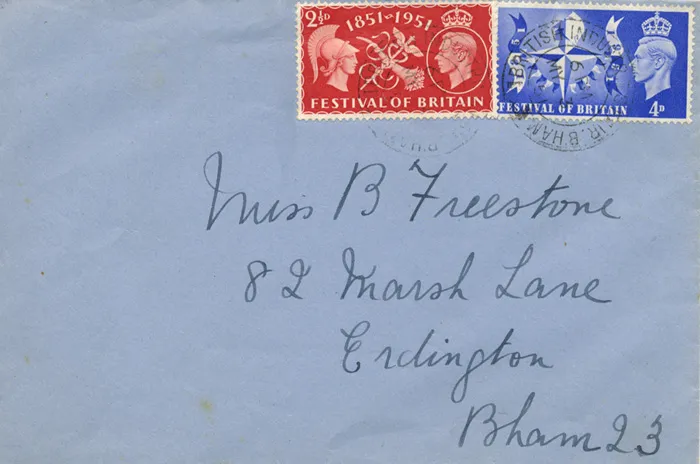 2½D
1851-1951
FESTIVAL OF BRITAIN
1851
1951
FESTIVAL OF BRITAIN
4D
BRITISH INDU
B'HAM
Miss B Freestone
82 Marsh Lane
Erdington
Bham 23